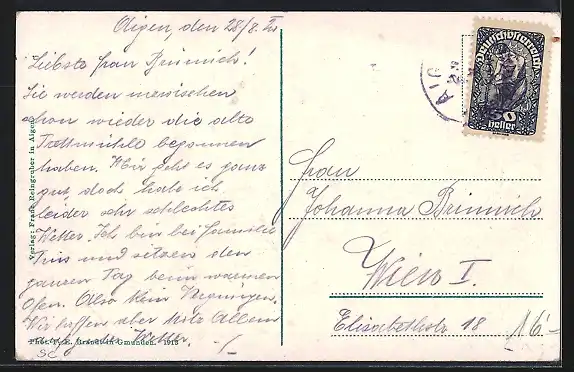 Aigen, den 28/8.
Liebste Frau Brimnich!
Sie werden inzwischen
schon wieder die alte
Trettmühle begonnen
haben. Mir geht es ganz
gut doch habe ich
leider sehr schlechtes
Wetter. Ich bin bei Familie
und sitzen den
ganzen Tag beim warmen
Ofen. Also kein Vergnügen.
Wir hoffen aber trotz Allem
Verlag: Franz Reingruber in Aigen
Phot. F. E. Brandt in Gmunden. 1913
Deutschösterreich
50
heller
AIG
Frau
Johanna Brimnich
Wien I.
Elisabethstr 18